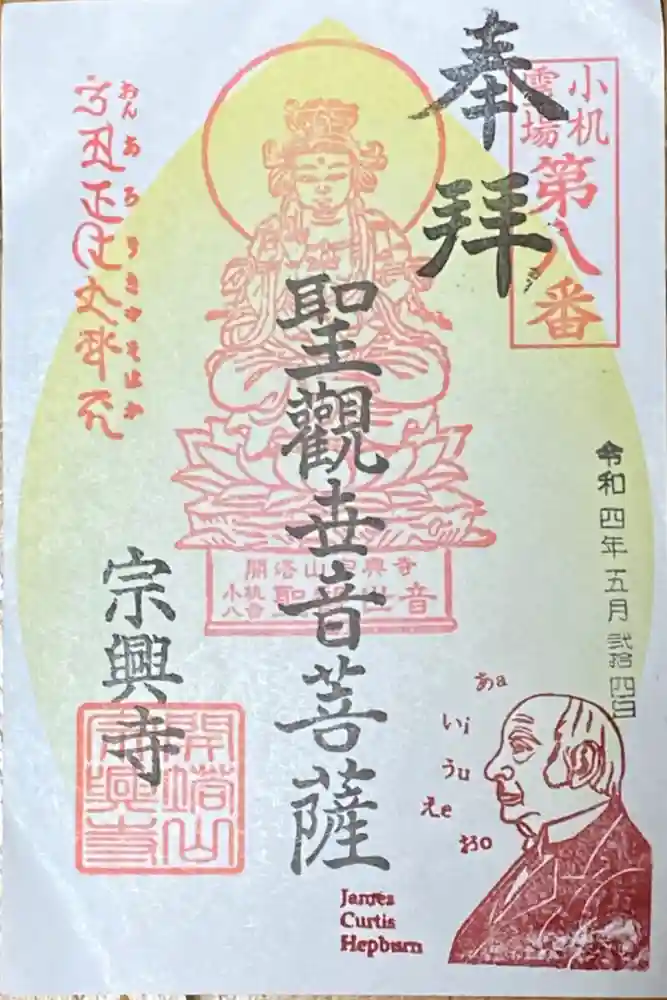 小机
霊場
第八番
奉拝
聖觀世音菩薩
おん あろりきゃ そはか
開塔山宗興寺
小机
八番
聖観世音
宗興寺
開塔山
宗興寺
令和四年五月弐拾四日
あa
いi
うu
えe
おo
James
Curtis
Hepburn